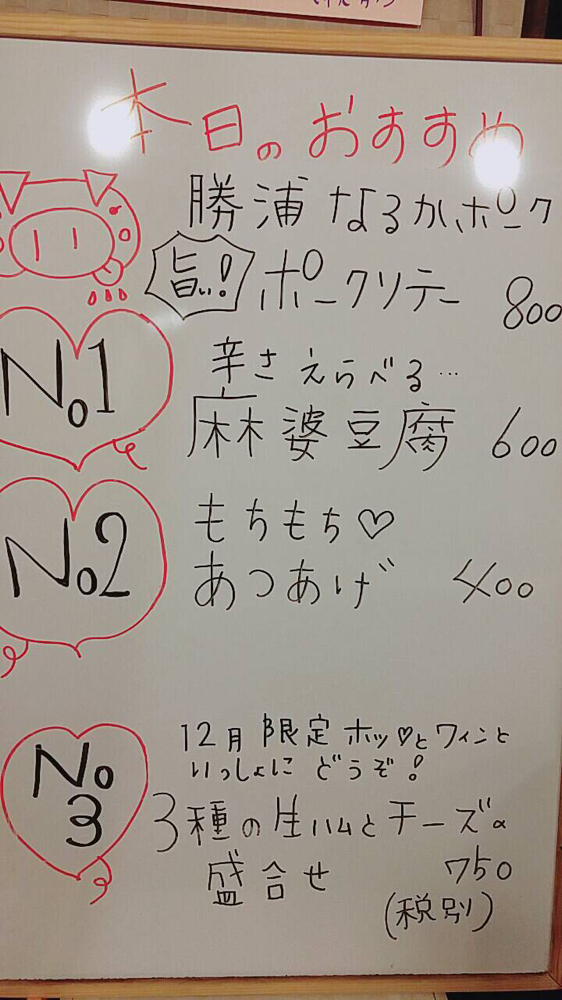 本日のおすすめ
勝浦なるかポーク
旨い! ポークソテー 800
No1
辛さえらべる…
麻婆豆腐 600
No2
もちもち♡
あつあげ 400
No3
12月限定ホッ♡とワインと
いっしょにどうぞ!
3種の生ハムとチーズの
盛合せ 750
(税別)